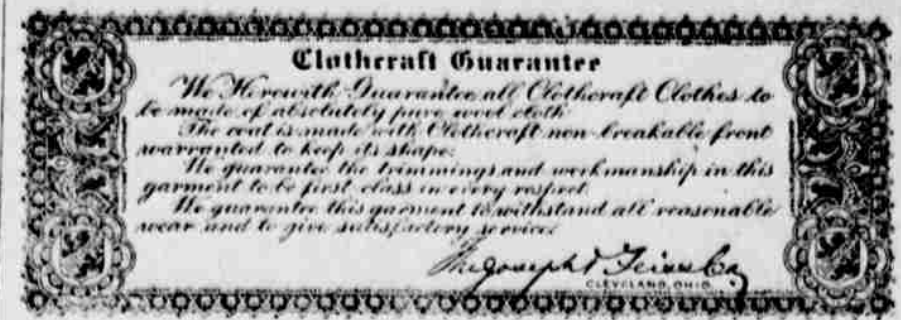 Clothcraft Guarantee
We Herewith Guarantee all Clothcraft Clothes to
be made of absolutely pure wool cloth
The coat is made with Clothcraft non-breakable front
warranted to keep its shape.
We guarantee the trimmings and workmanship in this
garment to be first class in every respect.
We guarantee this garment to withstand all reasonable
wear and to give satisfactory service.
The Joseph & Feiss Co.
CLEVELAND, OHIO.